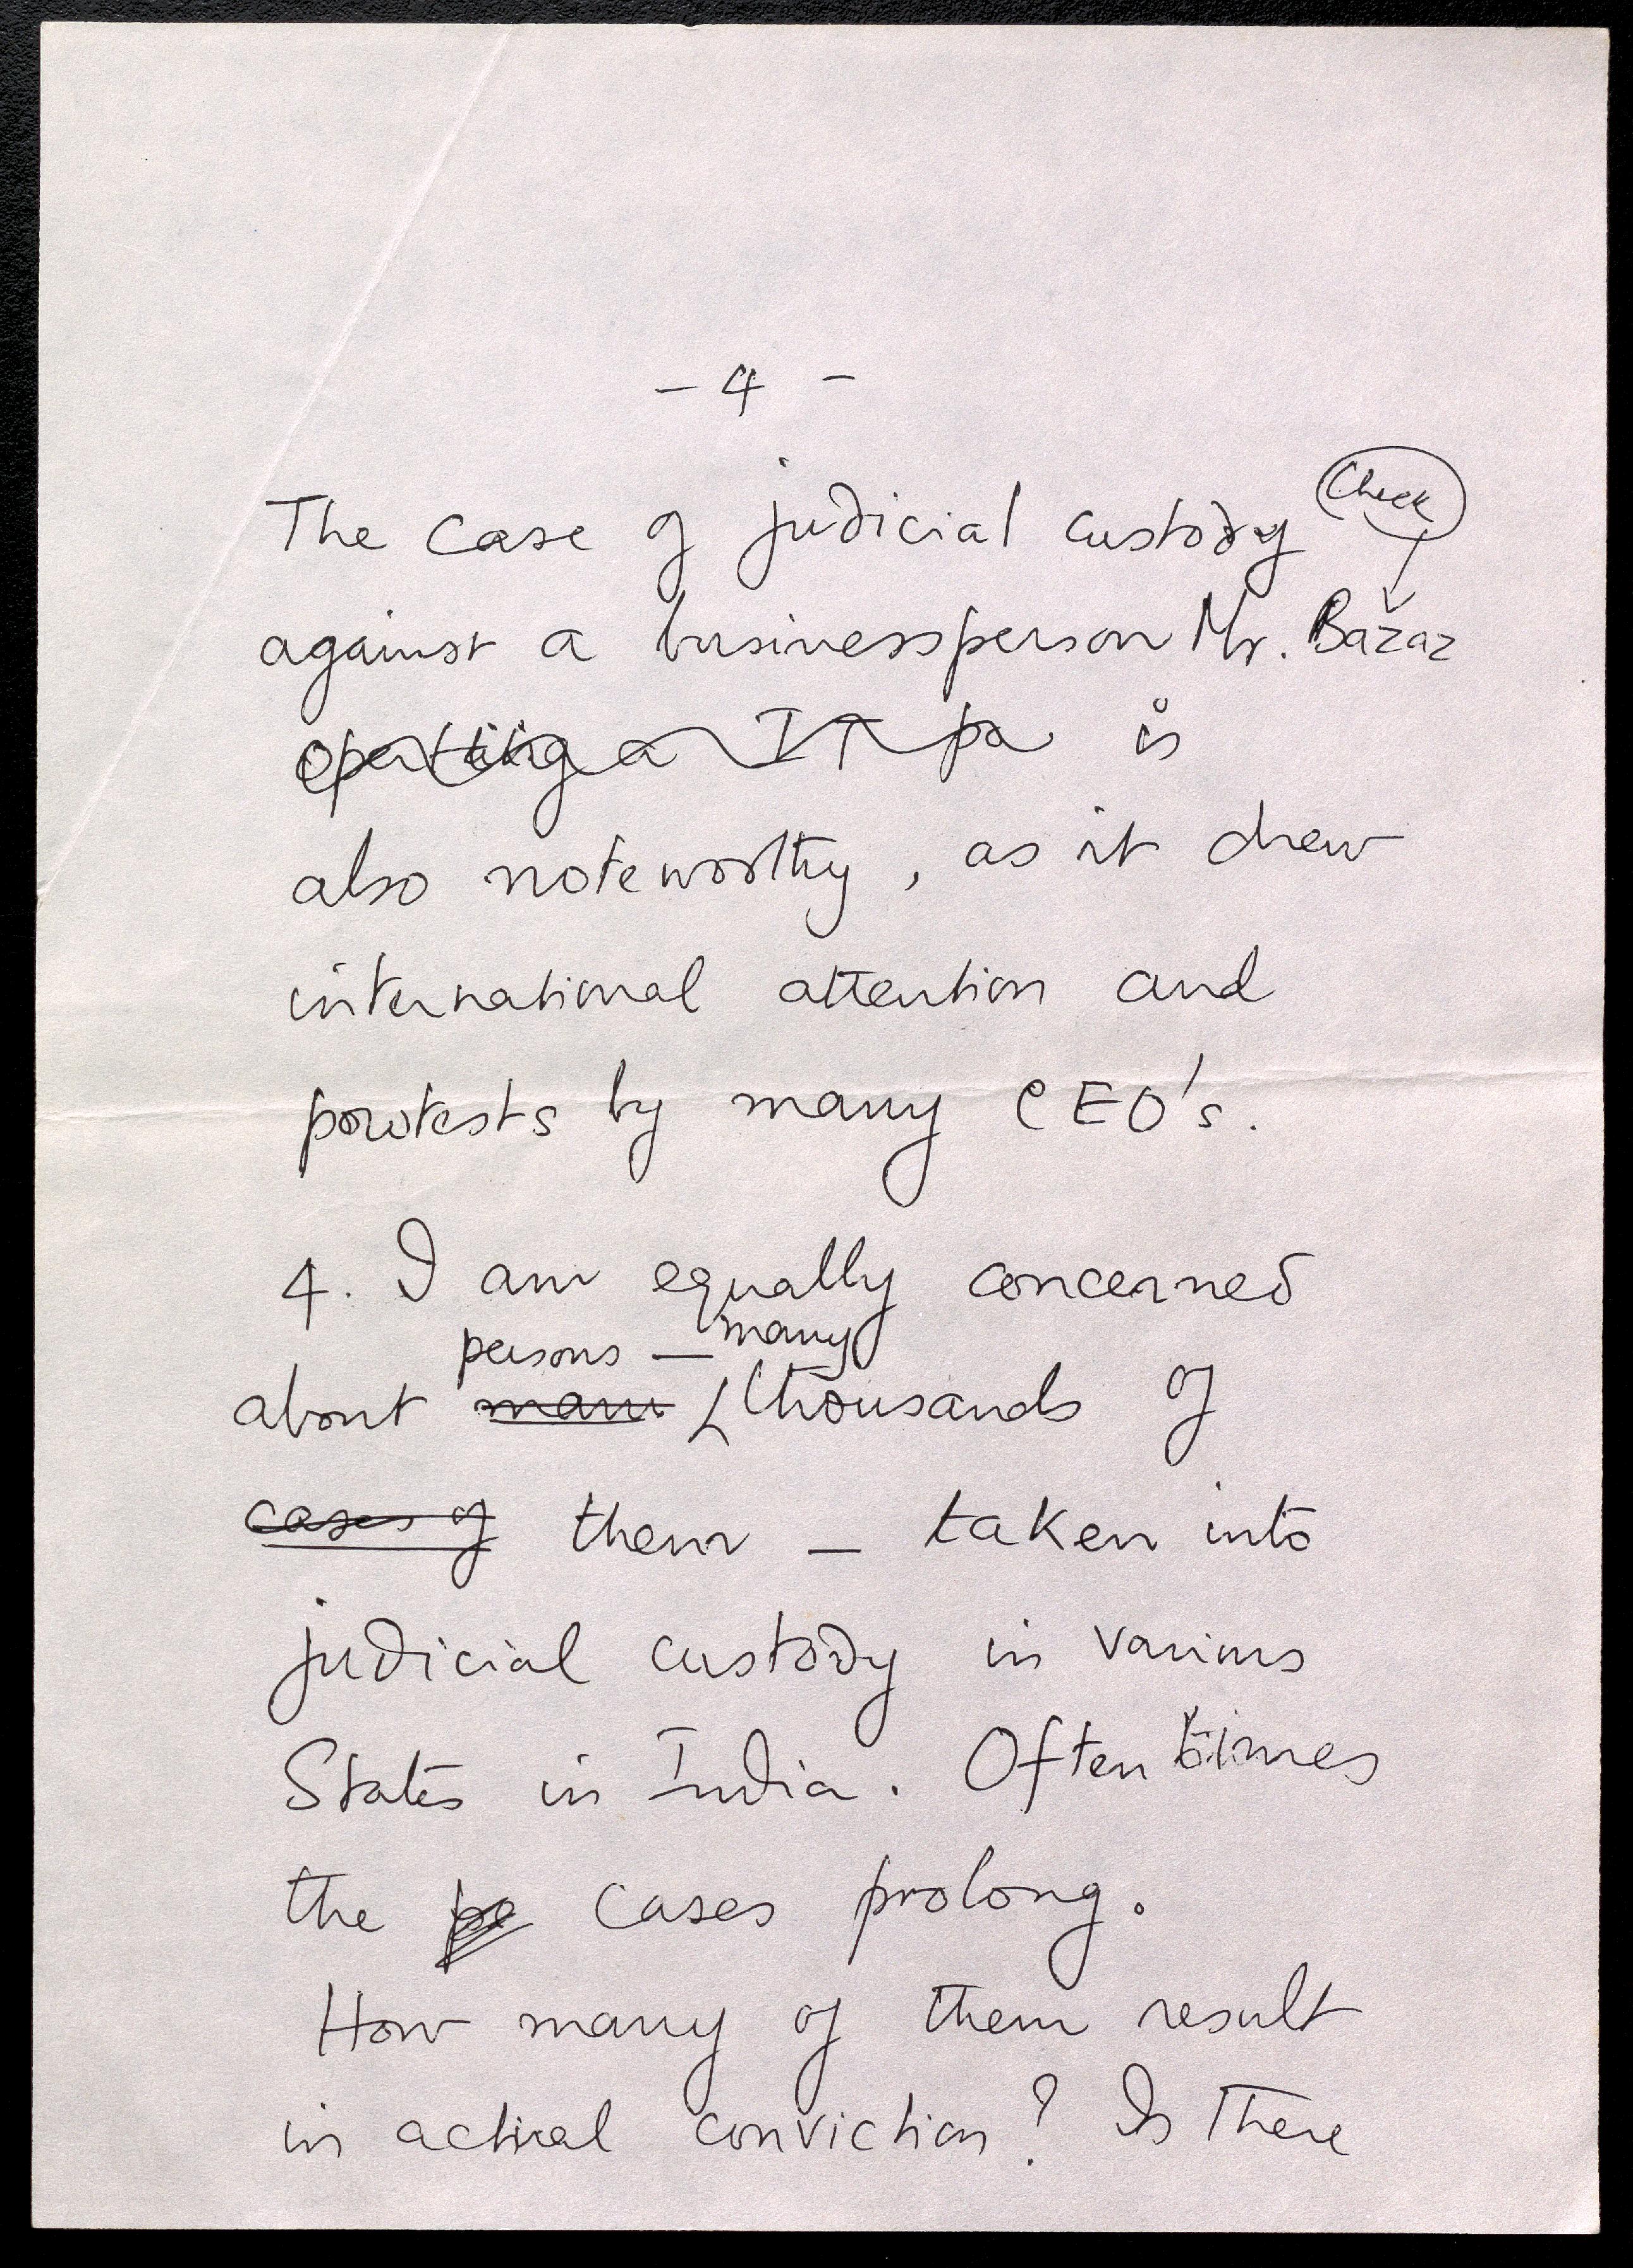 - 4 -
Check
The case of judicial custody
against a businessperson Mr. Bazaz
operting a IT pa is
also noteworthy, as it drew
international attention and
protests by many CEO's.
4. I am equally concerned
persons — many
about many thousands of
cases of them — taken into
judicial custody in various
States in India. Often times
the pe cases prolong.
How many of them result
in actual conviction? Is there